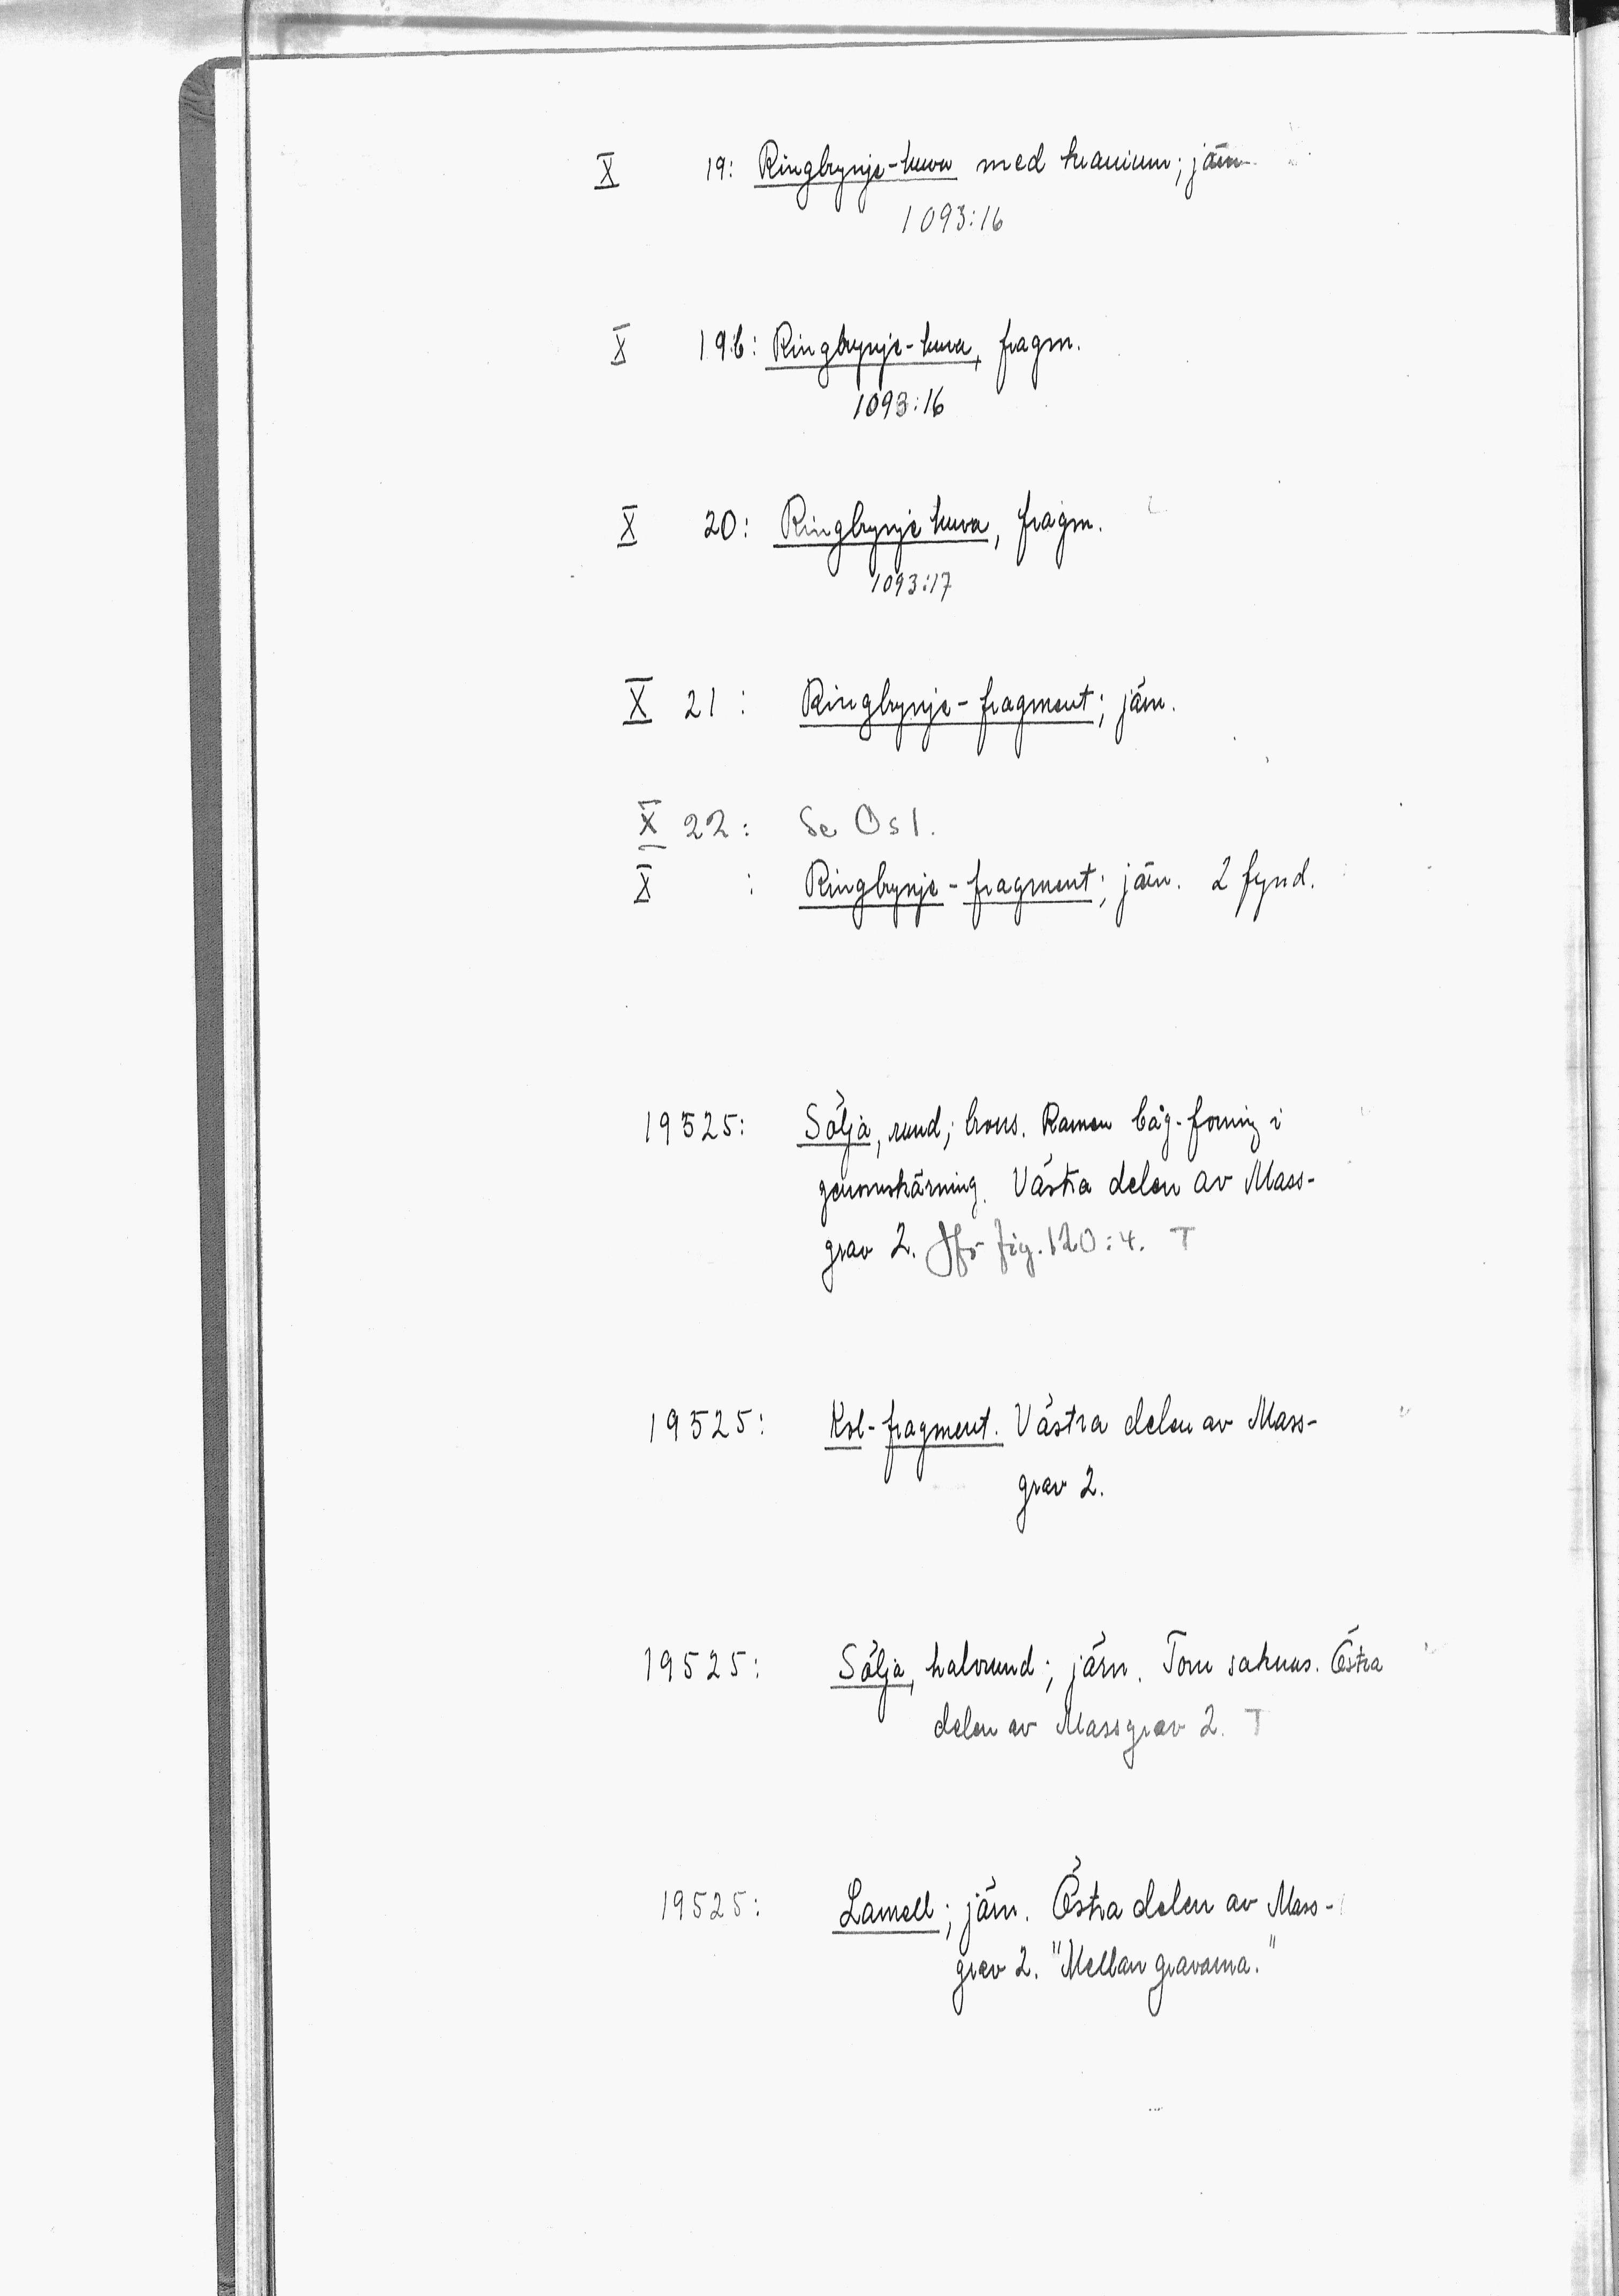 X 19: Ringbrynje-huva med kranium; järn
1093:16
X 19b: Ringbrynje-huva, fragm.
1093:16
X 20: Ringbrynje huva, fragm.
1093:17
X 21: Ringbrynje-fragment; järn.
X 22: Se Os 1.
X : Ringbrynje-fragment; järn. 2 fynd.
19525: Sölja, rund; brons. Ramen båg-formig i
genomskärning. Västra delen av Mass-
grav 2. Jfr fig. 120:4. T
19525: Kol-fragment. Västra delen av Mass-
grav 2.
19525: Sölja, halvrund; järn. Torn saknas. Östra
delen av Massgrav 2. T
19525: Lamell; järn. Östra delen av Mass-
grav 2. "Mellan gravarna."